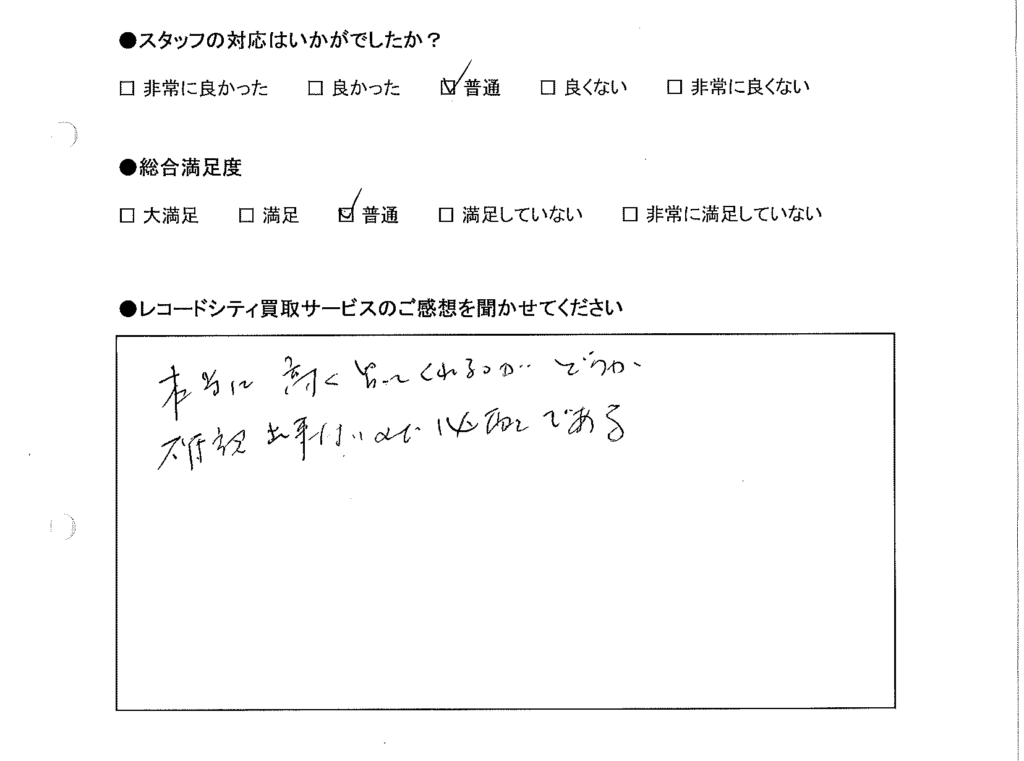 ●スタッフの対応はいかがでしたか？
□ 非常に良かった □ 良かった ☑ 普通 □ 良くない □ 非常に良くない
●総合満足度
□ 大満足 □ 満足 ☑ 普通 □ 満足していない □ 非常に満足していない
●レコードシティ買取サービスのご感想を聞かせてください
本当に高く買ってくれるのかどうか、
確認出来ない 必要である